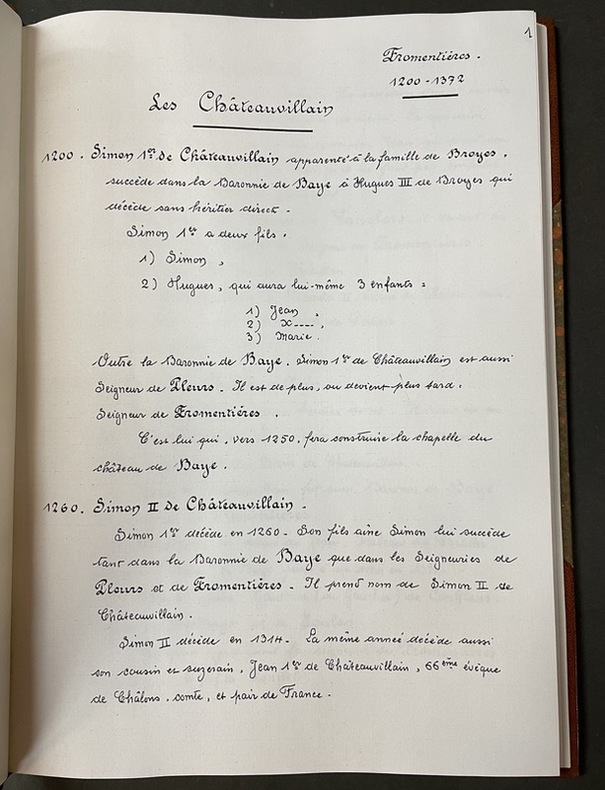 1
Fromentières.
1200-1372
Les Châteauvillain
1200. Simon 1er de Châteauvillain apparenté à la famille de Broyes.
succède dans la Baronnie de Baye à Hugues III de Broyes qui
décède sans héritier direct.
Simon 1er a deux fils.
1) Simon,
2) Hugues, qui aura lui-même 3 enfants :
1) Jean,
2) X----,
3) Marie.
Outre la Baronnie de Baye. Simon 1er de Châteauvillain est aussi
Seigneur de Pleurs. Il est de plus, ou devient plus tard :
Seigneur de Fromentières.
C'est lui qui, vers 1250, fera construire la chapelle du
château de Baye.
1260. Simon II de Châteauvillain.
Simon 1er décède en 1260. Son fils aîné Simon lui succède
tant dans la Baronnie de Baye que dans les Seigneuries de
Pleurs et de Fromentières. Il prend nom de Simon II de
Châteauvillain.
Simon II décède en 1314. La même année décède aussi
son cousin et suzerain, Jean 1er de Châteauvillain, 66ème évêque
de Châlons, comte, et pair de France.